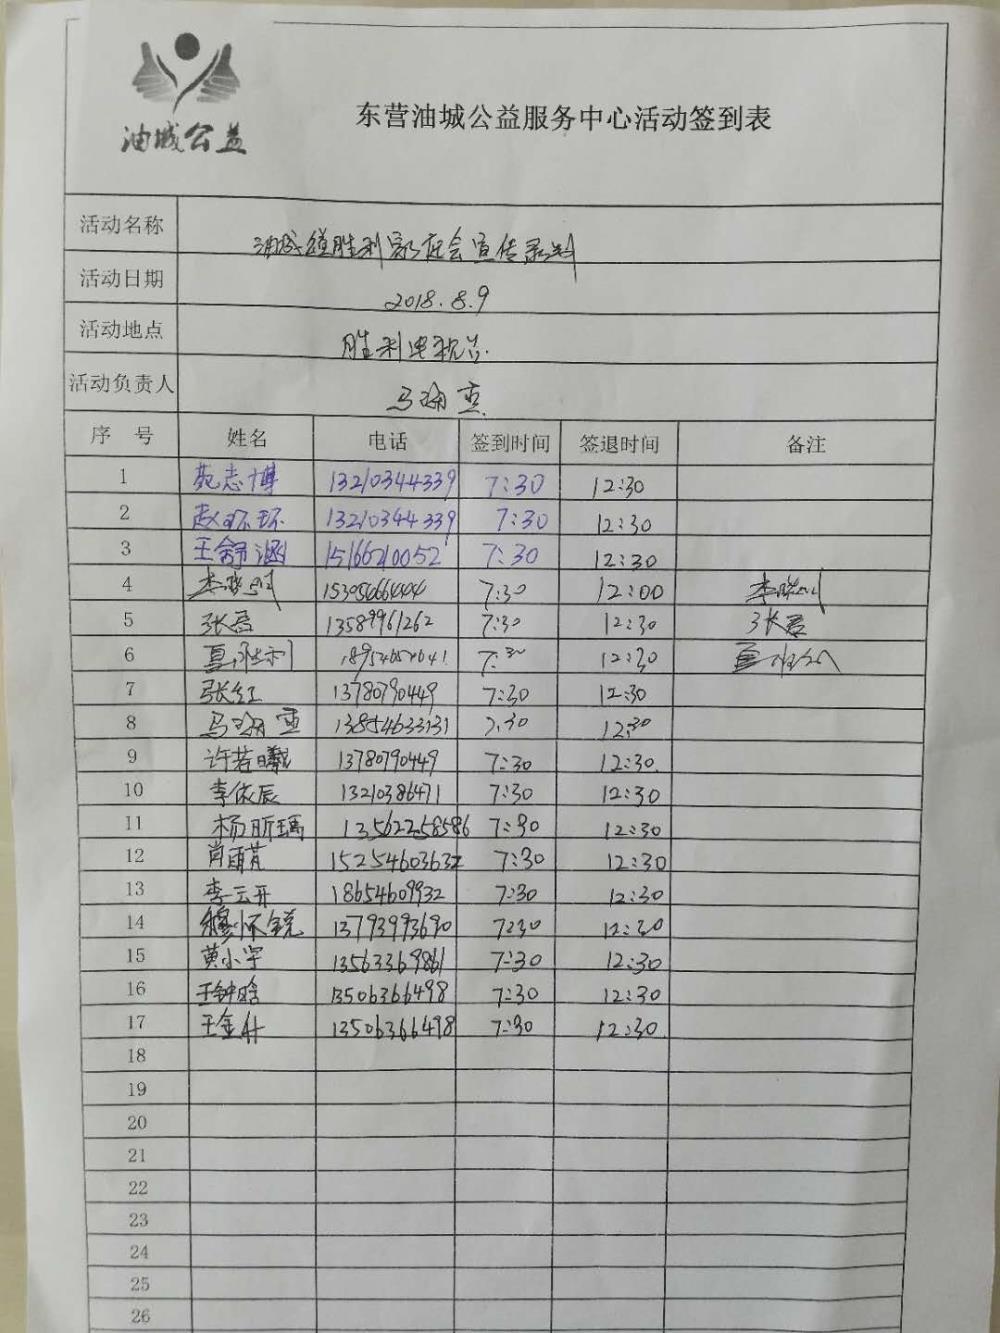 油城公益
东营油城公益服务中心活动签到表
活动名称
活动日期 2018.8.9
活动地点 胜利
活动负责人 马
序 号 姓名 电话 签到时间 签退时间 备注
1 苑志博 13210344339 7:30 12:30
2 赵环环 13210344339 7:30 12:30
3 王舒涵 15166210052 7:30 12:30
4 李 7:30 12:00 李
5 张君 13589961262 7:30 12:30 张君
6 夏 7:30 12:30 夏
7 张红 13780790449 7:30 12:30
8 马 13854633131 7:30 12:30
9 许若曦 13780790449 7:30 12:30
10 李依辰 13210386471 7:30 12:30
11 杨昕瑀 13562258586 7:30 12:30
12 肖雨芃 15254603632 7:30 12:30
13 李云开 18654609932 7:30 12:30
14 穆怀锐 13793993690 7:30 12:30
15 黄小宇 13563369861 7:30 12:30
16 王钟晗 13506366498 7:30 12:30
17 王金升 13506366498 7:30 12:30
18
19
20
21
22
23
24
25
26